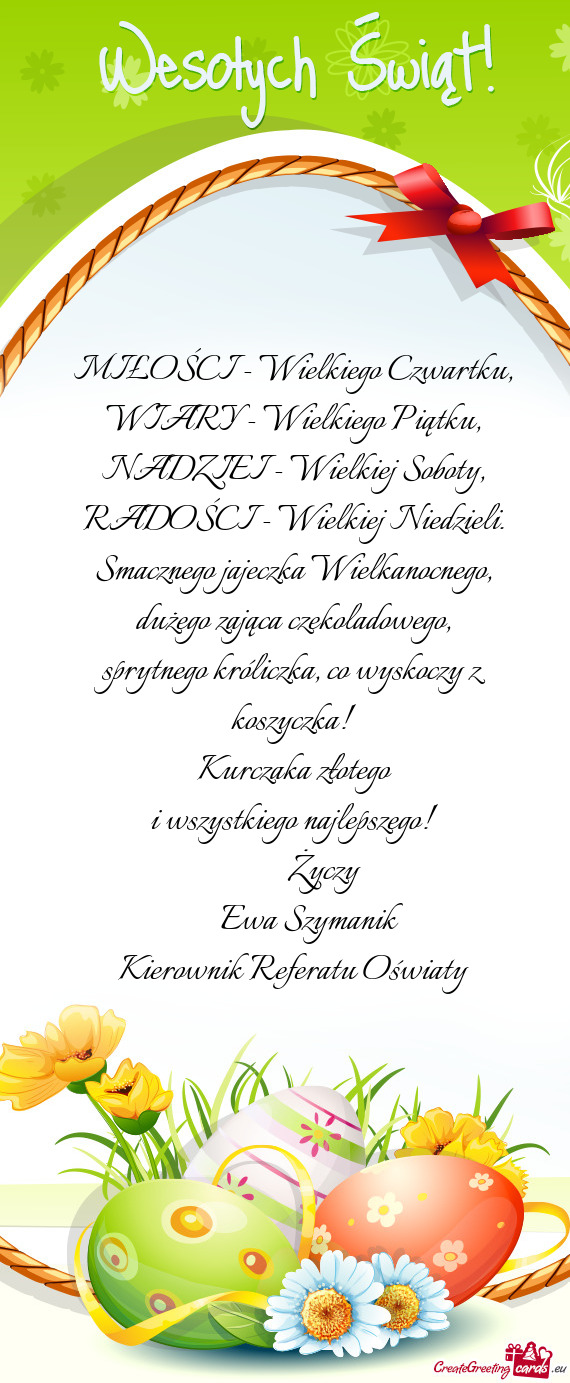 Wesołych Świąt!
MIŁOŚCI - Wielkiego Czwartku,
WIARY - Wielkiego Piątku,
NADZIEI - Wielkiej Soboty,
RADOŚCI - Wielkiej Niedzieli.
Smacznego jajeczka Wielkanocnego,
dużego zająca czekoladowego,
sprytnego króliczka, co wyskoczy z
koszyczka!
Kurczaka złotego
i wszystkiego najlepszego!
Życzy
Ewa Szymanik
Kierownik Referatu Oświaty
CreateGreeting cards .eu